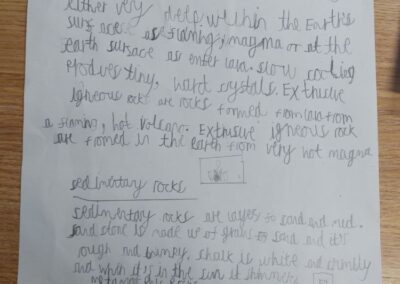 either very deep within the Earth's
surface as flaming, magma or at the
earth surface as lava. slow cooling
tiny, hard crystals. Extrusive
igneous rocks are rocks formed from lava from
a flaming, hot volcano. Extrusive igneous rock
are fromed in the earth from very hot magma
sedimentary rocks
sedimentary rocks are layers so sand and mud.
sand stone is made up of grains of sand and it's
rough and bumpy. chalk is white and crumbly
and when it's in the sun it shimmers.